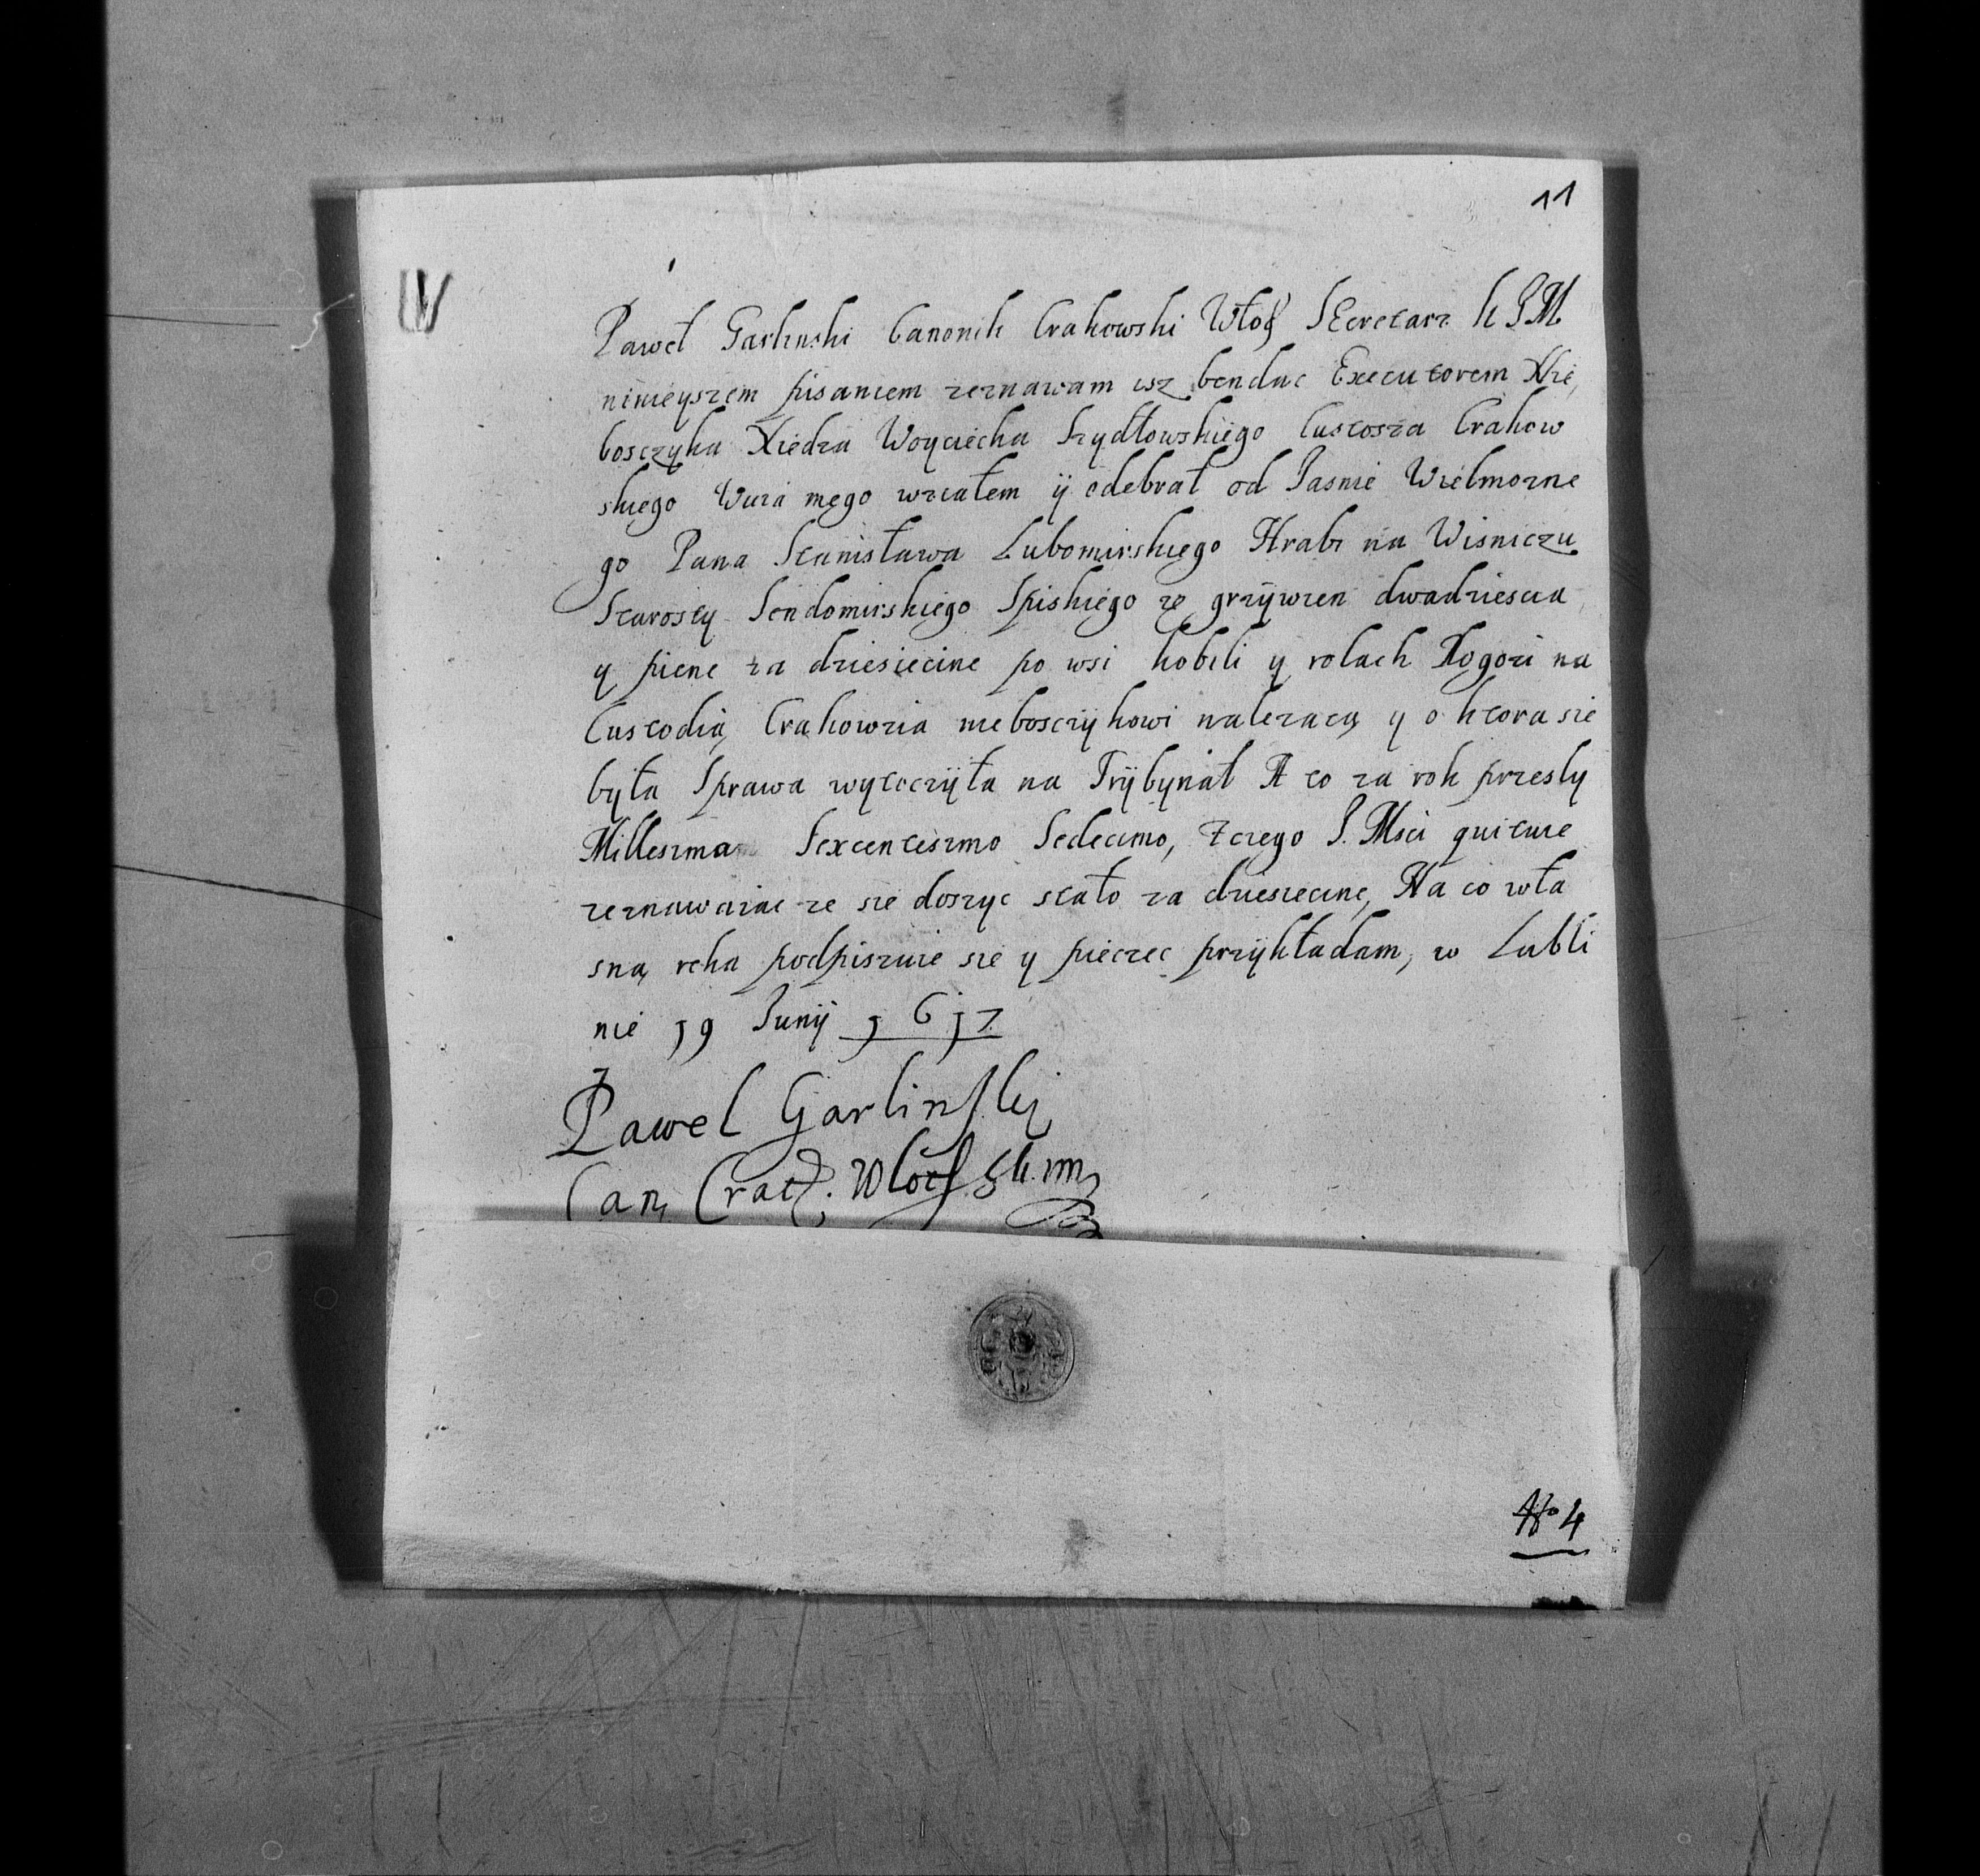 11
IV
Paweł Garlinski Canonik Crakowski Włoc SEcretarz K J M
ninieyszem pisaniem zeznawam isz bendac Executorem Nie
bosczyka Xiedza Woyciecha Szydłowskiego Custosza Crakow
skiego Wuia mego wziałem ÿ odebrał od Jasnie Wielmozne
go Pana Stanisława Lubomirskiego Hrabi na Wisniczu
Starosty Sendomirskiego Spiskiego ze grzywien dwadziescia
y piene za dziesiecine po wsi kobili y rolach Rogozi na
Custodią Crakowzia nieboscziykowi nalezacą y o ktora sie
była Sprawa wytoczÿła na Trÿbynał A to za rok przesly
Millesima Sexcentesimo Sedecimo, Zczego J. Msci quituie
zeznawaiac ze sie doszyc stało za dziesiecine, Na co wła
sną reka podpiszuie sie y pieczec przÿkładam, w Lubli
nie 19 Junÿ 1617
Pawel Garlinskj
Can Crac. Wlocs
No 4